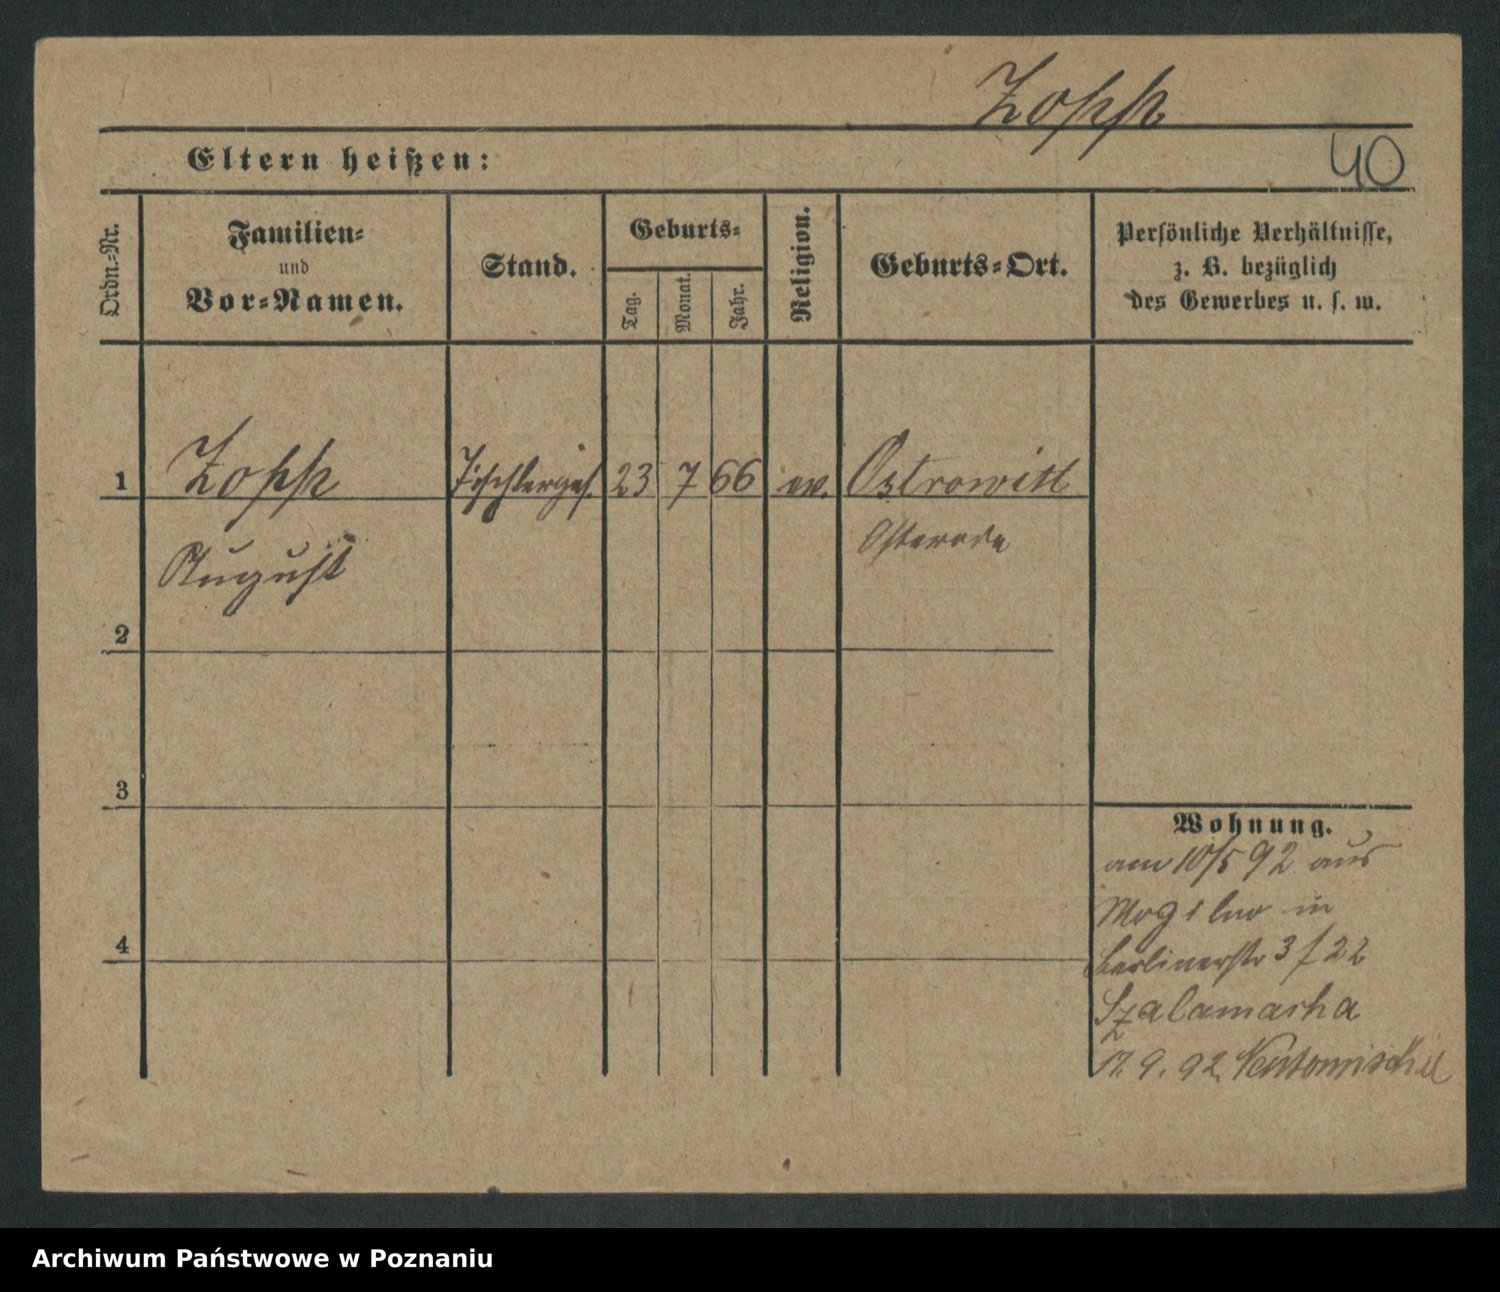 Zopp
Eltern heißen:
40
Ordn.-Nr.
Familien-
und
Vor-Namen.
Stand.
Geburts-
Tag.
Monat.
Jahr.
Religion.
Geburts-Ort.
Persönliche Verhältnisse,
z. B. bezüglich
des Gewerbes u. s. w.
1 Zopp Tischlerges. 23 7 66 ev. Ostrowitt
Osterode
August
2
3
Wohnung.
am 10/5 92 aus
Mogilno in
4
Berlinerstr 3 / 22
17. 9. 92. Neutomischel
Archiwum Państwowe w Poznaniu